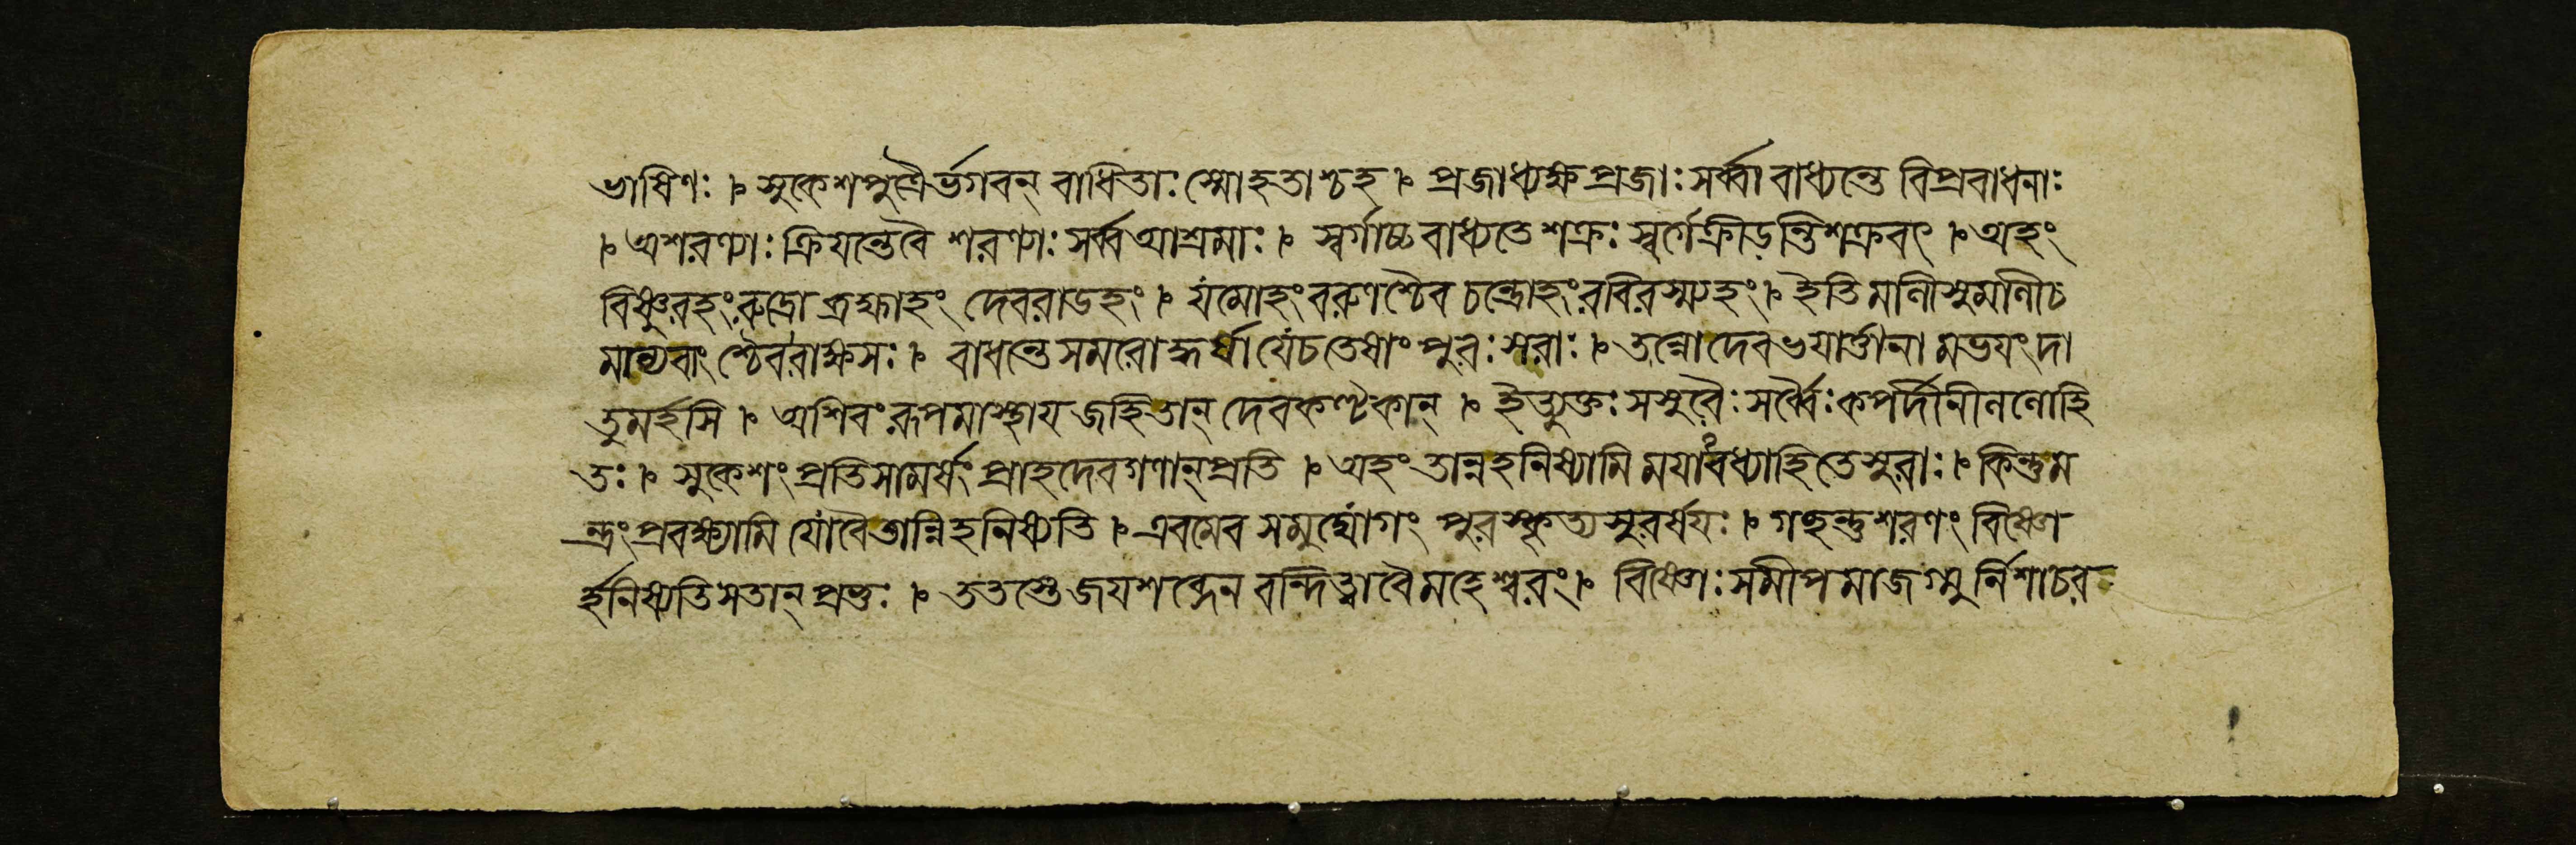 ভাষিণঃ । সুকেশপুত্রৈর্ভগবন্ বাধিতাঃ স্মোহতাশ্চহ । প্রজাধ্যক্ষ প্রজাঃ সর্ব্বা বাধ্যন্তে বিপ্রবাধনাঃ
। অশরণ্যাঃ ক্রিয়ন্তেবৈ শরণ্যাঃ সর্ব্ব আশ্রমাঃ । স্বর্গাচ্চ বাধ্যতে শক্রঃ স্বর্গেক্রীড়ন্তিশক্রবৎ । অহং
বিষ্ণুরহংরুদ্রো ব্রহ্মাহং দেবরাডহং । যমোহংবরুণশ্চৈব চন্দ্রোহংরবিরস্ম্যহং । ইতি মালীসুমালীচ
মাল্যবাংশ্চৈবরাক্ষসঃ । বাধন্তে সমরোদ্ধর্ষা যেচতেষাং পুরঃসরাঃ । তন্নো দেবভয়ার্ত্তানা মভয়ংদা
তুমর্হসি । অশিবংরূপমাস্থায় জহিতান্ দেবকণ্টকান্ । ইত্যুক্তঃ সসুরৈঃ সর্ব্বৈঃ কপর্দীনীললোহি
তঃ । সুকেশং প্রতিসামর্ষং প্রাহদেবগণান্প্রতি । অহং তান্নহনিষ্যামি ময়াবধ্যাহিতেসুরাঃ । কিন্তুম
ন্ত্রংপ্রবক্ষ্যামি যোবৈতান্নিহনিষ্যতি । এবমেব সমুদ্যোগং পুরস্কৃত্য সুরর্ষয়ঃ । গচ্ছন্তুশরণং বিষ্ণো
র্হনিষ্যতিসতান্ প্রভুঃ । ততস্তেজয়শব্দেন বন্দিত্বাবৈমহেশ্বরং । বিষ্ণোঃ সমীপমাজগ্মু র্নিশাচর